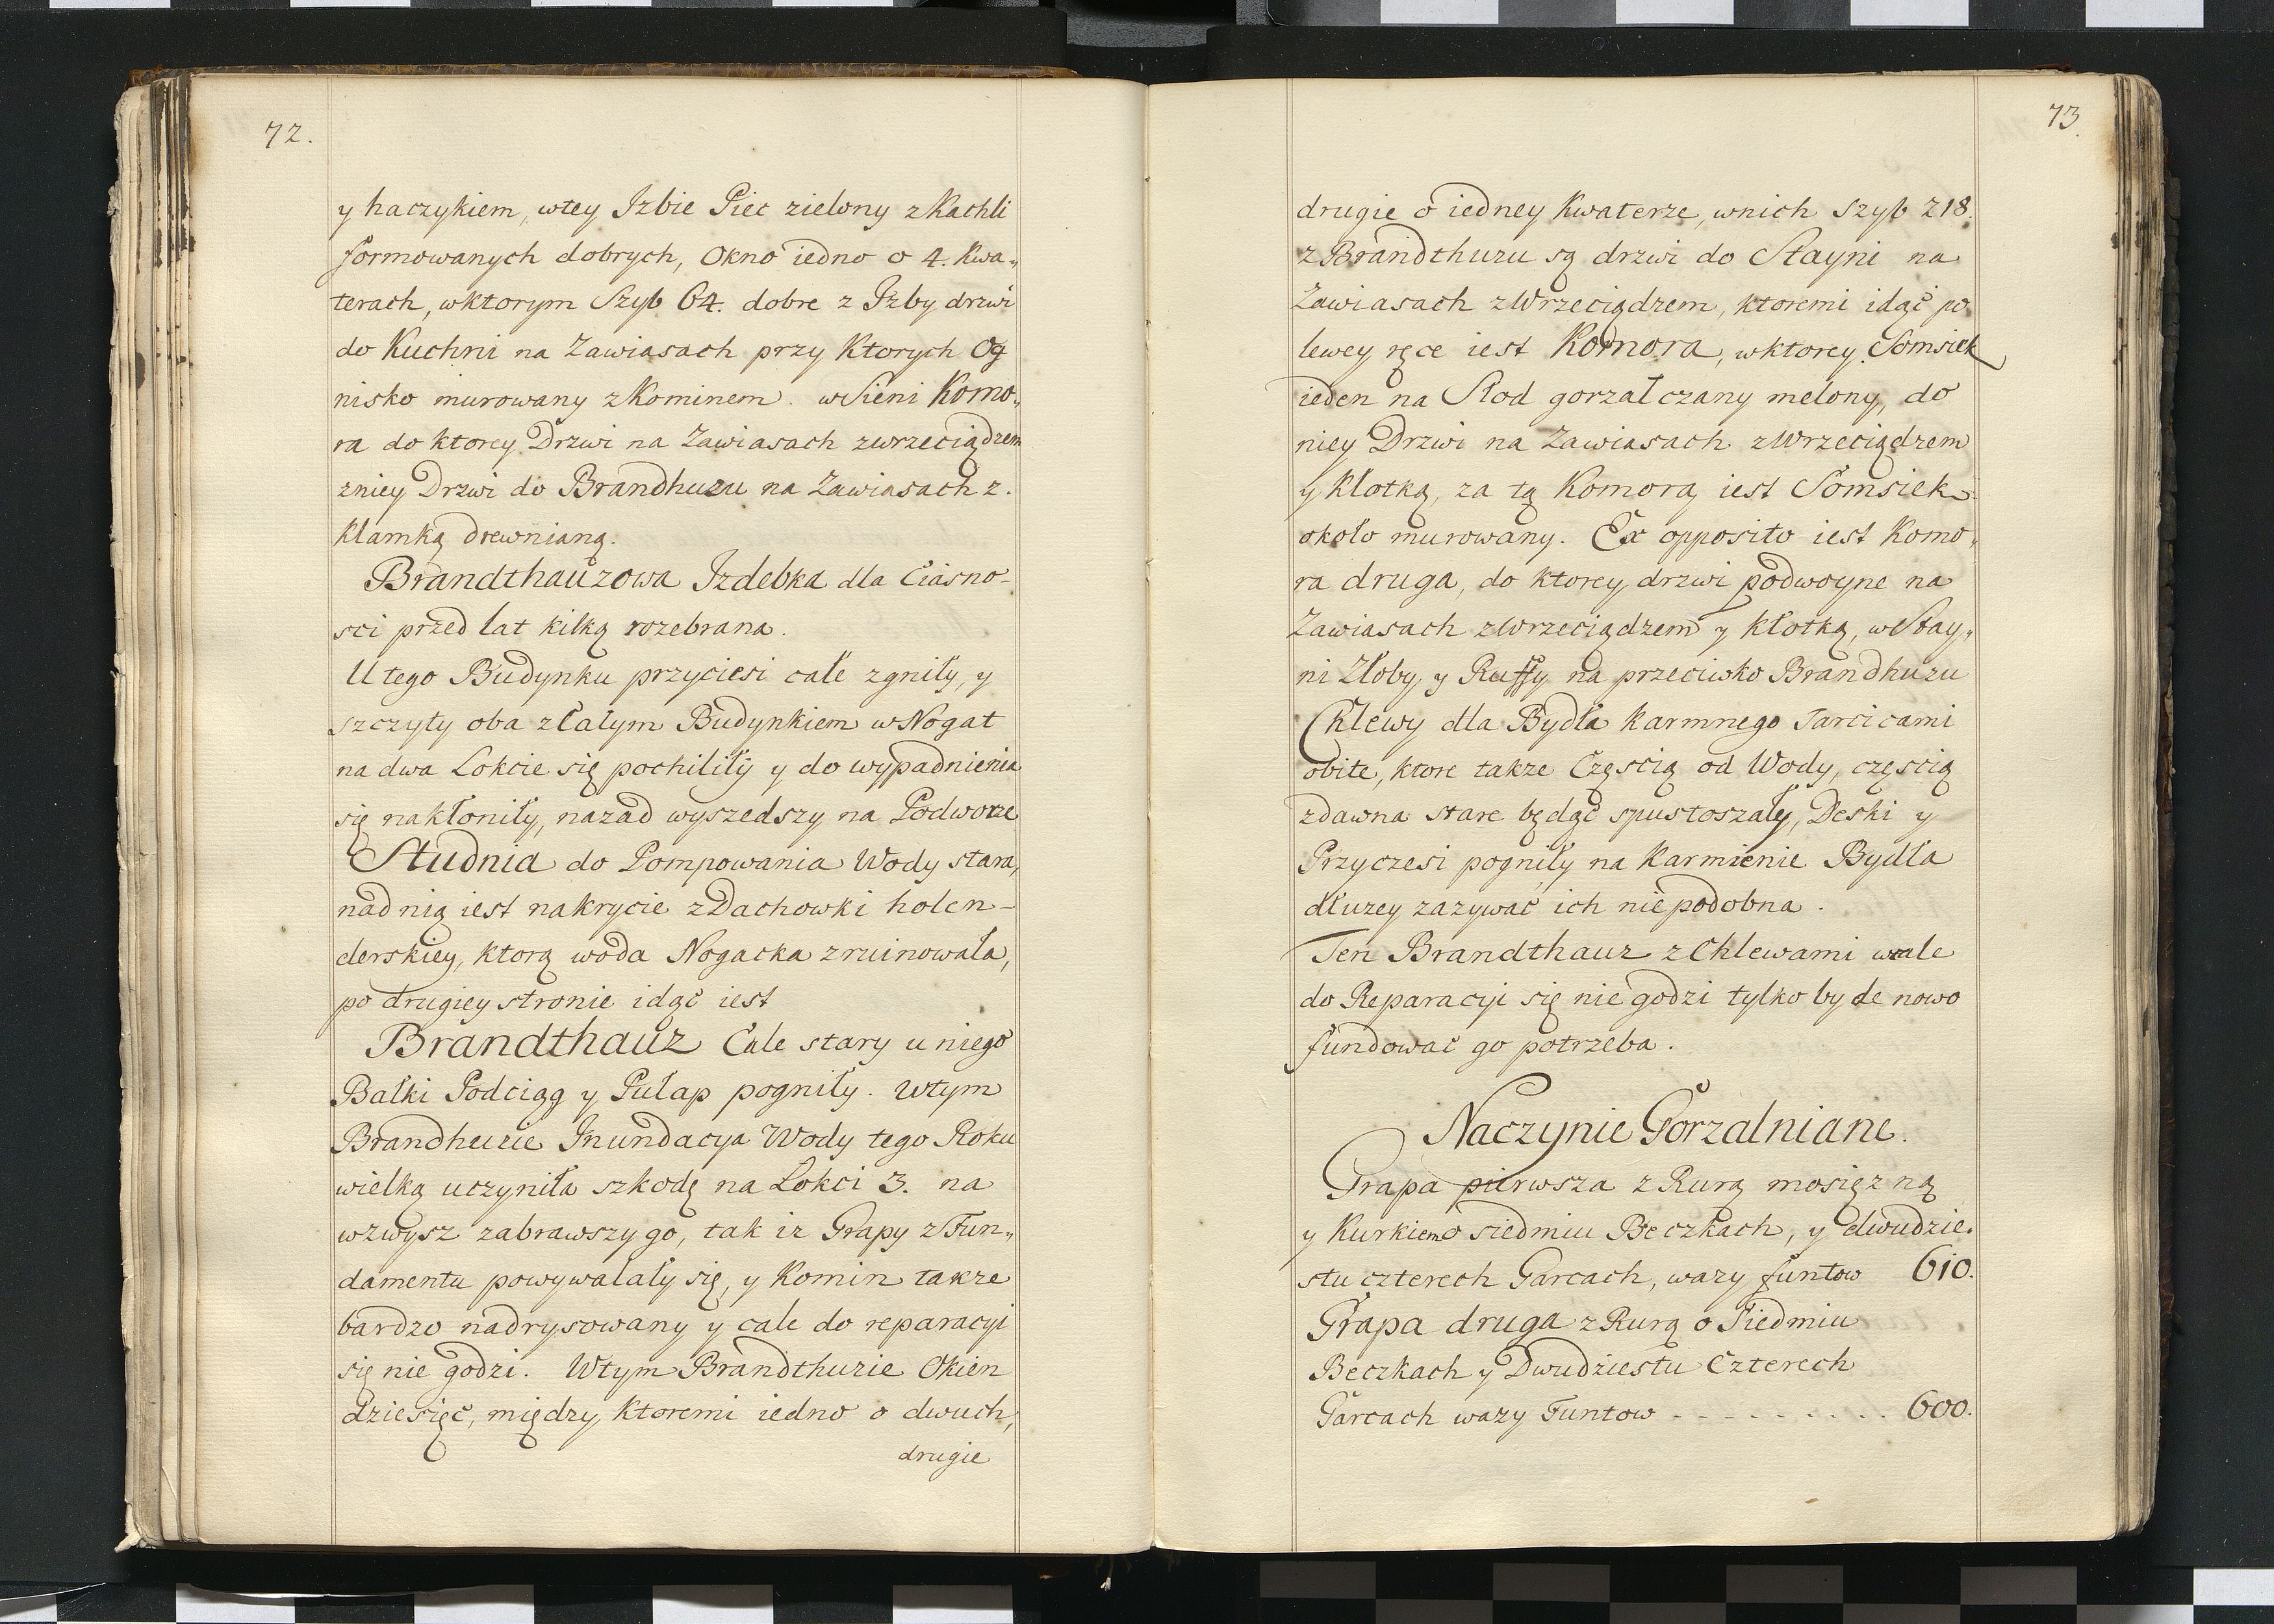 72.
y haczykiem, wtey Izbie Piec zielony z Kachli
formowanych dobrych, Okno iedno o 4. Kwa„
terach, wktorym Szyb 64. dobre z Izby drzwi
do Kuchni na Zawiasach przy Ktorych Og
nisko murowany z Kominem. w Sieni Komo„
ra do ktorey Drzwi na Zawiasach zwrzeciądzem
zniey Drzwi do Brandhuzu na Zawiasach z.
Klamką drewnianą.
Brandthauzowa Izdebka dla Ciasno-
sci przed lat kilką rozebrana.
U tego Budynku przyciesi całe zgniły, y
szczyty oba zCałym Budynkiem w Nogat
na dwa Łokcie się pochiliły y do wypadnienia
się nakłoniły, nazad wyszedszy na Podworze
Studnia do Pompowania Wody stara,
nad nią iest nakrycie z Dachowki holen-
derskiey, ktorą woda Nogacka zruinowała,
po drugiey stronie idąc iest
Brandthauz Cale stary u niego
Balki Podciąg y Pułap pogniły. Wtym
Brandhuzie Inundacya Wody tego Roku
wielką uczyniła szkodę na Łokci 3. na
wzwysz zabrawszy go, tak iz Grapy z Fun„
damentu powywalały się, y Komin takze
bardzo nadrysowany y cale do reparacyi
się nie godzi. Wtym Brandthuzie Okien
dziesięć, między, ktoremi iedno o dwuch,
drugie
73.
drugie o iedney Kwaterze, wnich Szyb 218.
z Brandthuzu są drzwi do Stayni na
Zawiasach z Wrzeciądzem, ktoremi idąc po
lewey ręce iest Komora, wktorey Somsiek
ieden na Słod gorzałczany melony, do
niey Drzwi na Zawiasach z Wrzeciądzem
y Kłotką, za tą Komorą iest Somsiek
około murowany. Ex opposito iest Komo„
ra druga, do ktorey drzwi podwoyne na
Zawiasach z Wrzeciądzem y Kłotką, w Stay„
ni Złoby y Raffy na przeciwko Brandhuzu
Chlewy dla Bydła Karmnego Tarcicami
obite, ktore takze Częscią od Wody, częscią
zdawna stare będąc spustoszały, Deski y
Przyczesi pogniły na Karmienie Bydła
dłuzey zazywać ich niepodobna.
Ten Brandthauz z Chlewami wcale
do Reparacyi się nie godzi tylko by de novo
fundować go potrzeba.
Naczynie Gorzalniane.
Grapa pierwsza z Rurą mosięzną
y Kurkiem o siedmiu Beczkach, y dwudzie.
stu czterech Garcach, wazy funtow 610.
Grapa druga z Rurą o Siedmiu
Beczkach y Dwudziestu Czterech
Garcach wazy Funtow - - - - - - - - - 600.